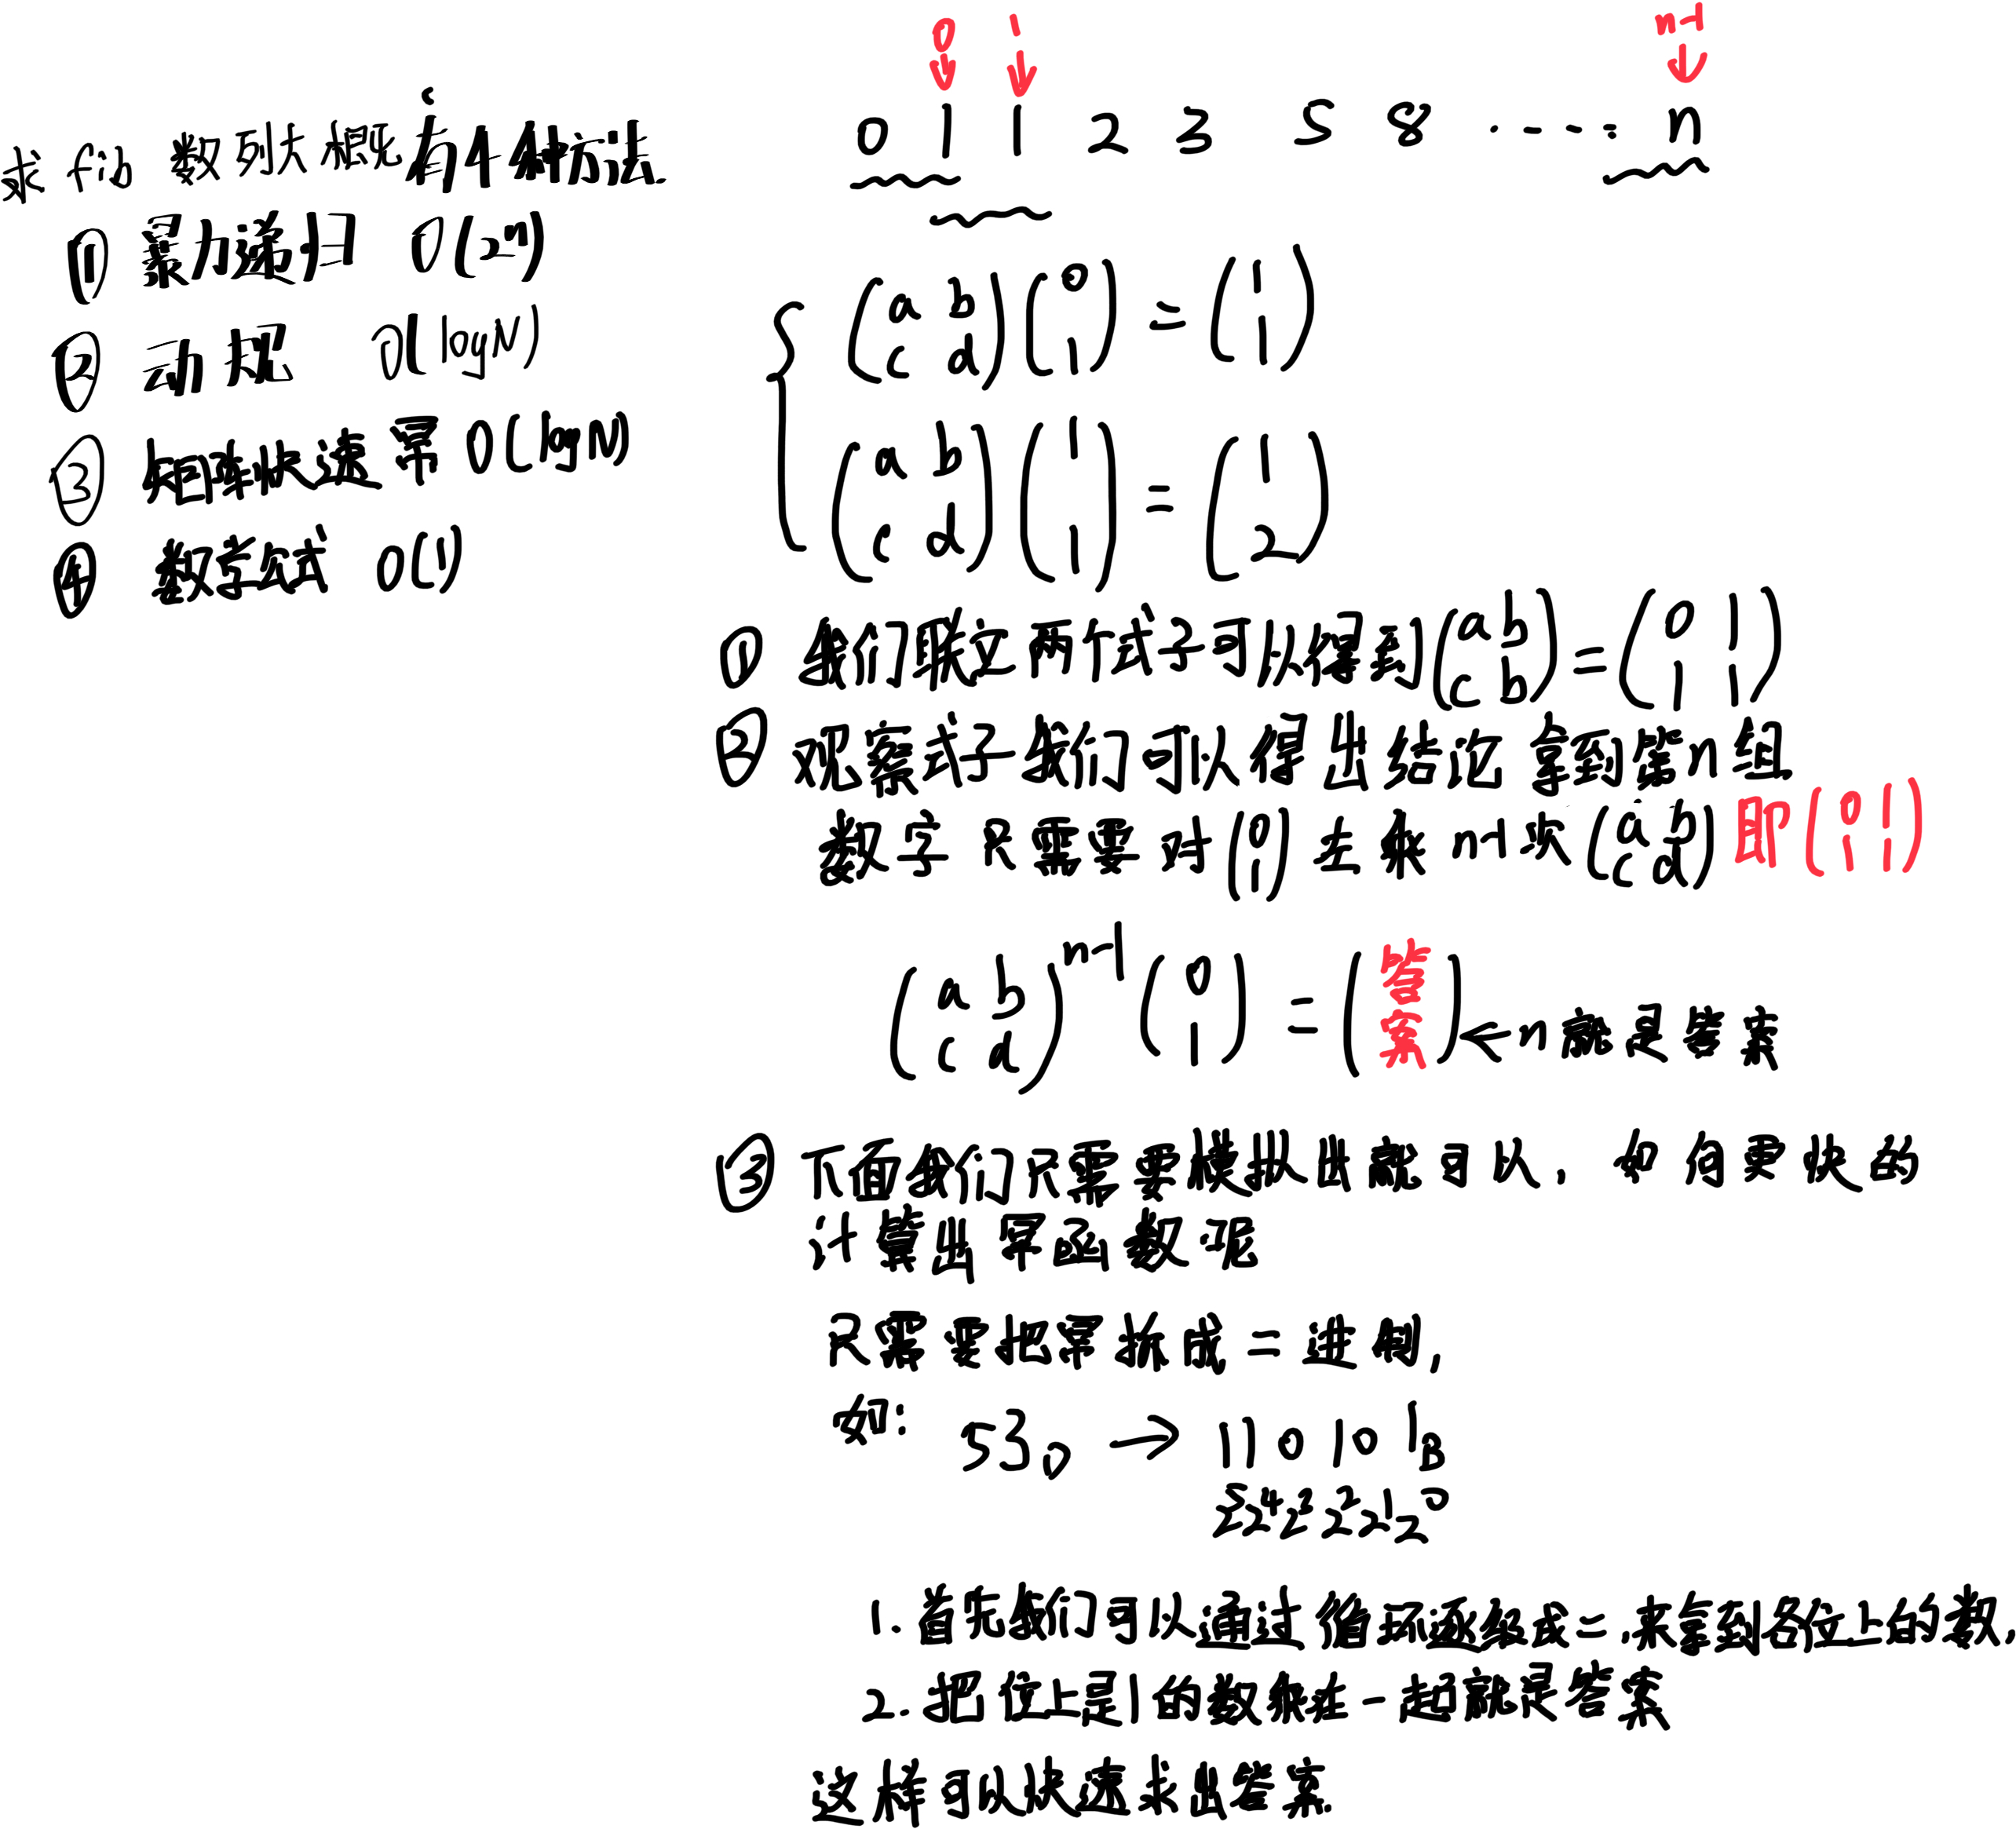 求 fib 数列大概有4种方法.
① 暴力递归 O(2ⁿ)
② 动规 O(logN)
③ 矩阵快速幂 O(logN)
④ 数学公式 O(1)
0 1 n-1
0 1 1 2 3 5 8 ..... n
(a b
c d)(0
1) = (1
1)
(a b
c d)(1
1) = (1
2)
① 我们联立两个式子可以得到(a b
c b) = (0 1
1 1)
② 观察式子我们可以得出结论 拿到第n组
数字 只需要对(0
1)左乘 n-1次(a b
c d) 即(0 1
1 1)
(a b
c d)ⁿ⁻¹(0
1) = (答
案) ← n就是答案
③ 下面我们只需要模拟出就可以, 如何更快的
计算出幂函数呢
只需要把幂拆成二进制,
如: 53D → 110101B
2⁵2⁴2³2²2¹2⁰
1. 首先我们可以通过循环逐级成二,来拿到各位上的数,
2. 把位上是1的数乘在一起就是答案
这样可以快速求出答案.